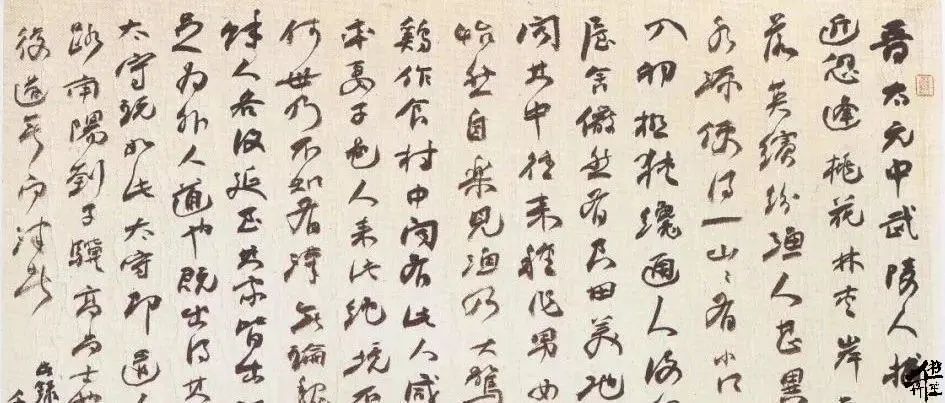 晉太元中武陵人捕
近忽逢桃花林夾岸
落英繽紛漁人甚異
水源便得一山〻有小口
入初極狹纔通人復行
屋舍儼然有良田美池
聞其中往来種作男女
怡然自樂見漁乃大驚
鷄作食村中聞有此人咸
率妻子邑人来此絶境不
何世乃不知有漢無論魏
餘人各復延至其家皆出
足为外人道也既出得其
太守說如此太守即遣人
路南陽劉子驥高尚士也
後遂無問津者